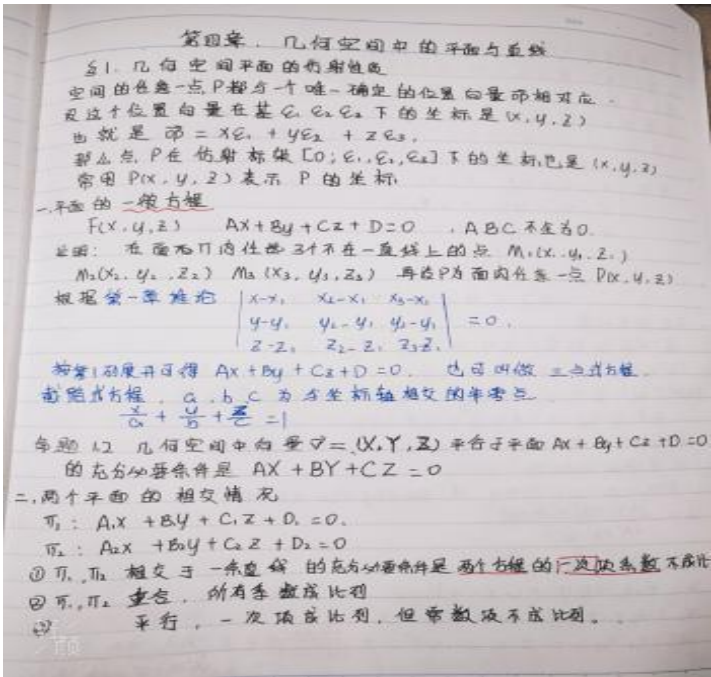 第四章. 几何空间中的平面与直线
§1. 几何空间平面的仿射性质
空间的任意一点P都与一个唯一确定的位置向量OP相对应.
设这个位置向量在基ε₁ ε₂ ε₃ 下的坐标是(x,y,z)
也就是 OP = xε₁ + yε₂ + zε₃,
那么点P在仿射标架[O;ε₁,ε₂,ε₃]下的坐标也是(x,y,z)
常用P(x,y,z)表示P的坐标
一.平面的一般方程
F(x,y,z) Ax+By+Cz+D=0 . A B C不全为0.
证明: 在面π内任选3个不在一直线上的点 M₁(x₁,y₁,z₁)
M₂(x₂,y₂,z₂) M₃(x₃,y₃,z₃) 再设P为面内任意一点P(x,y,z)
根据第一章推论 | x-x₁ x₂-x₁ x₃-x₁ |
| y-y₁ y₂-y₁ y₃-y₁ | =0.
| z-z₁ z₂-z₁ z₃-z₁ |
按第1列展开可得 Ax+By+Cz+D=0. 也可叫做三点式方程.
截距式方程. a,b,c为与坐标轴相交的非零点
x/a + y/b + z/c =1
命题1.2 几何空间中向量v=(X,Y,Z)平行于平面Ax+By+Cz+D=0
的充分必要条件是 AX+BY+CZ=0
二,两个平面的相交情况
π₁: A₁x+B₁y+C₁z+D₁=0.
π₂: A₂x+B₂y+C₂z+D₂=0
① π₁,π₂ 相交于一条直线的充分必要条件是两个方程的一次项系数不成比
② π₁,π₂ 重合, 所有系数成比列
③ 平行,一次项成比列,但常数项不成比列。